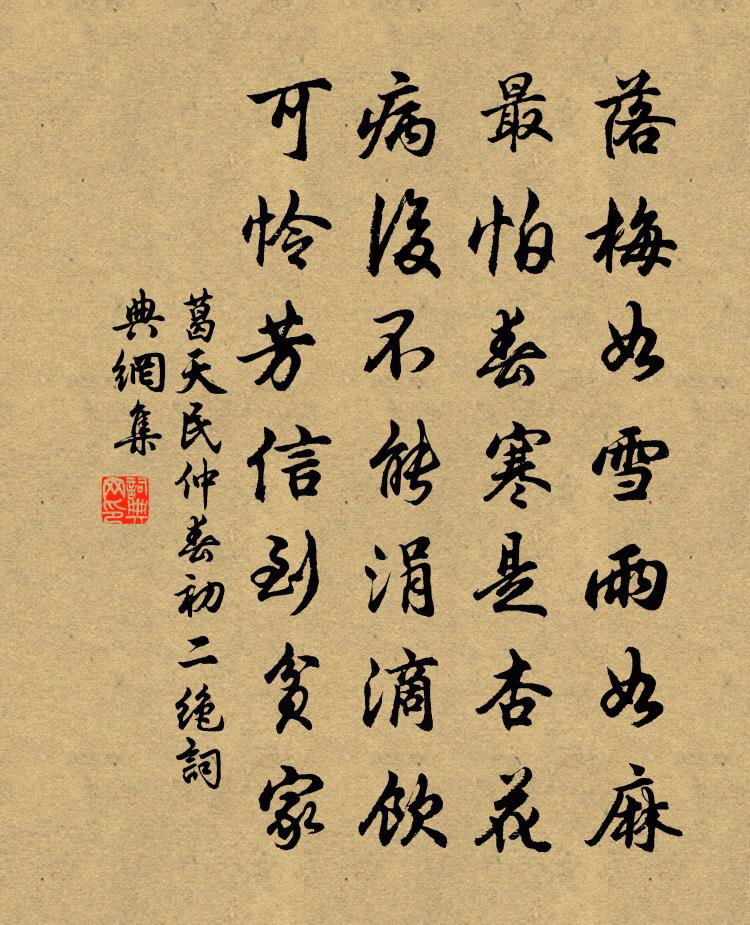 落梅如雪雨如麻
最怕春寒是杏花
病後不能涓滴飲
可憐芳信到貧家
葛天民仲春初二絶詞
典網集
詞典
网印